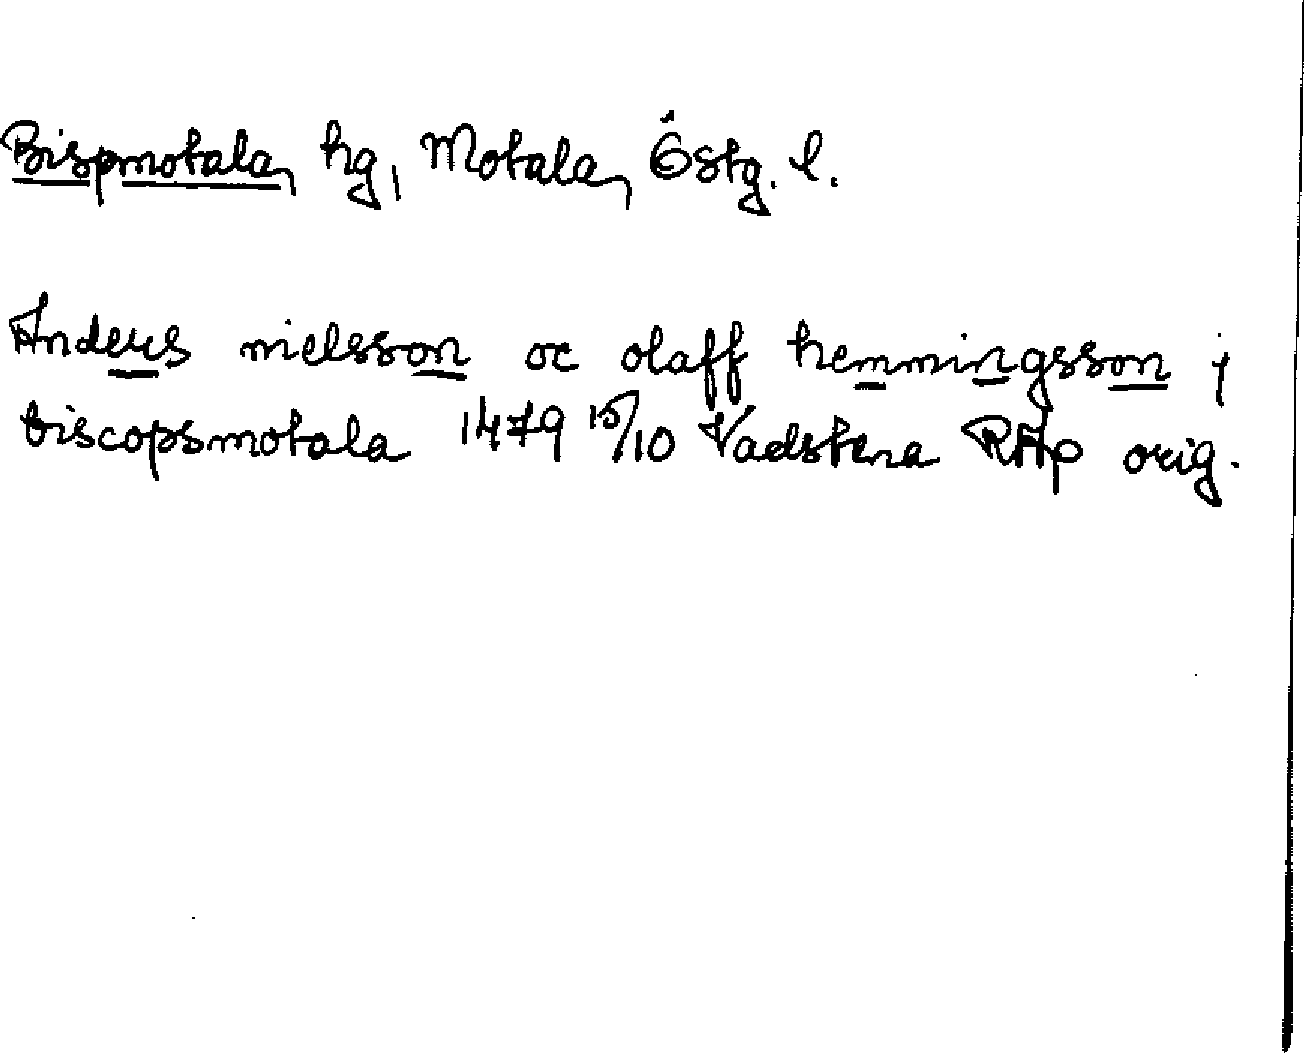 Bispmotala, hg, Motala, Östg. l.
Anders nielsson oc olaff hemmingsson j
biscopsmotala 1479 15/10 Vadstena RAp orig.